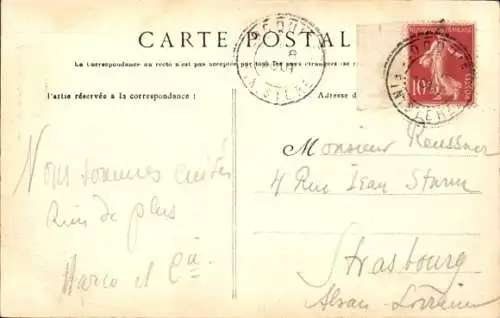 CARTE POSTALE
La Correspondance au recto n'est pas acceptée par tous les pays étrangers
Partie réservée à la correspondance :
Adresse
10
Nous sommes
Rien de plus
Marco et Cie
Monsieur Reussner
4 Rue Jean Sturm
Strasbourg
Alsace-Lorraine